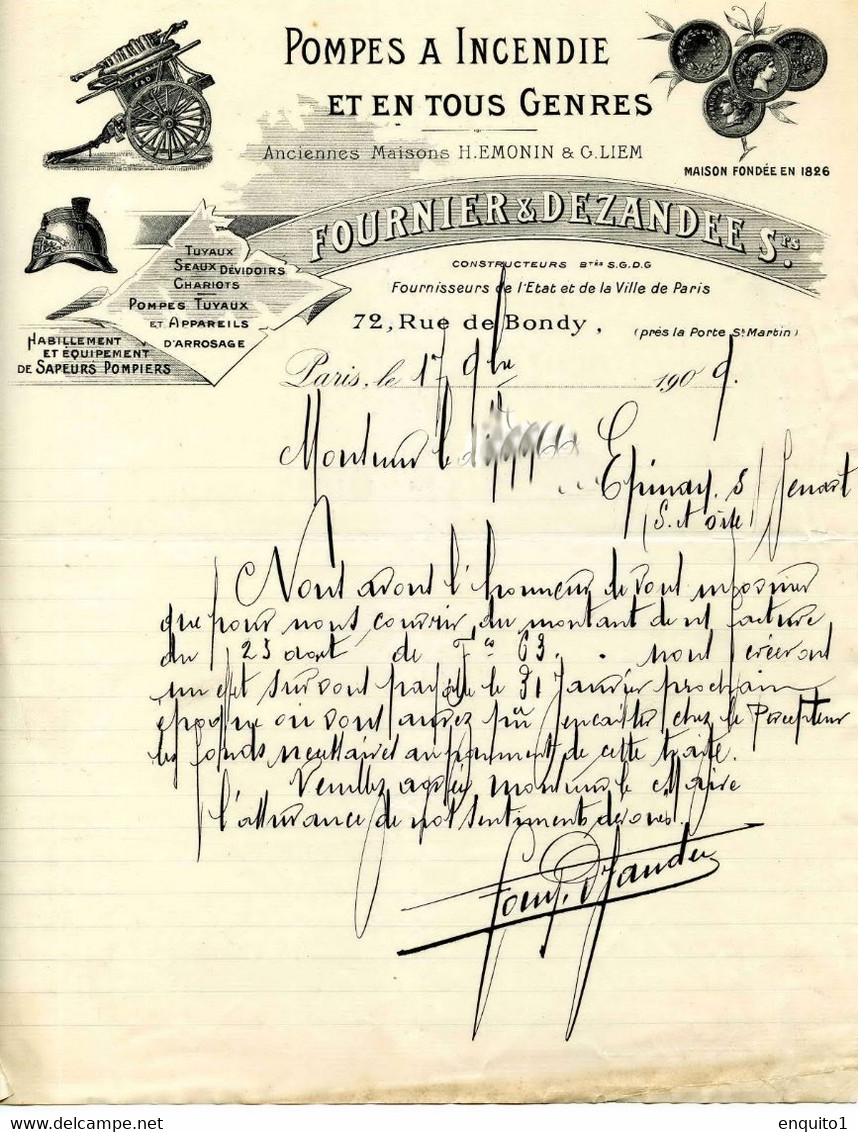 POMPES A INCENDIE
ET EN TOUS GENRES
Anciennes Maisons H.EMONIN & G.LIEM
MAISON FONDÉE EN 1826
F&D
FOURNIER & DEZANDEE Srs.
CONSTRUCTEURS Btés S.G.D.G
Fournisseurs de l'Etat et de la Ville de Paris
72, Rue de Bondy, (près la Porte St Martin)
TUYAUX
SEAUX DÉVIDOIRS
CHARIOTS
POMPES TUYAUX
ET APPAREILS
D'ARROSAGE
HABILLEMENT
ET EQUIPEMENT
DE SAPEURS POMPIERS
Paris, le 17 9bre 1909.
Monsieur le
Epinay s/ Senart
(S. et Oise)
Nous avons l'honneur de vous informer
que pour nous couvrir du montant de n/ facture
du 25 août de Fcs 63. nous créerons
un effet sur vous payable le 31 Janvier prochain
époque où vous aurez pu encaisser chez le Percepteur
les fonds nécessaires au paiement de cette traite.
Veuillez agréer monsieur le Maire
l'assurance de nos sentiments dévoués.
enquito1